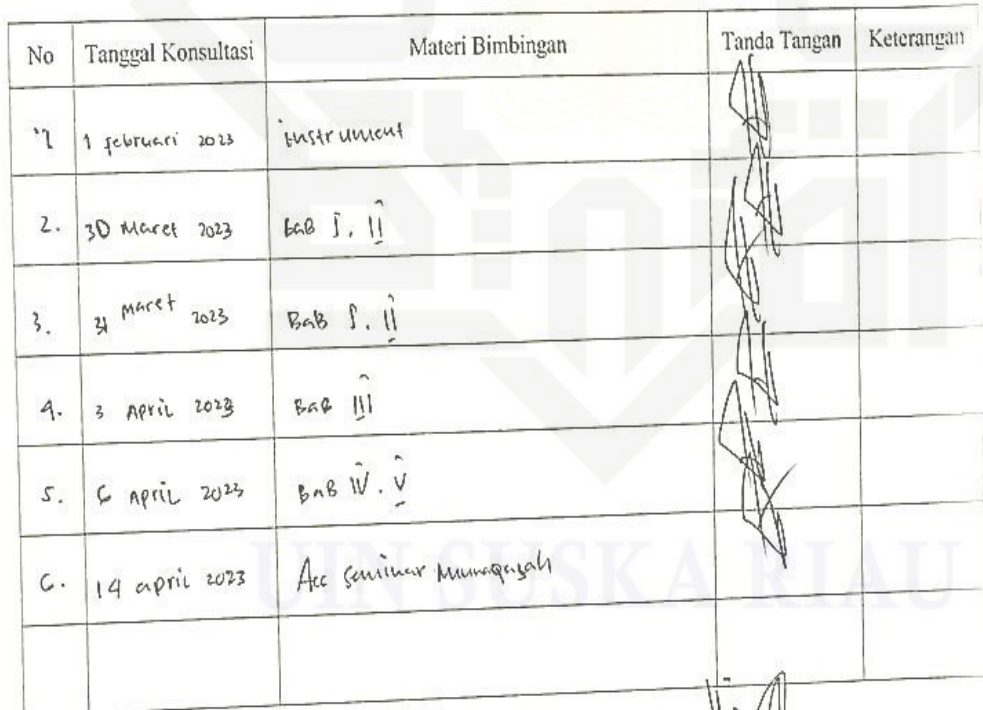 No Tanggal Konsultasi Materi Bimbingan Tanda Tangan Keterangan
1 1 februari 2023 instrument
2. 30 Maret 2023 BaB I. II
3. 31 Maret 2023 BaB I. II
4. 3 April 2023 BaB III
5. 6 April 2023 BaB IV. V
6. 14 april 2023 Acc Seminar Munaqasah
UIN SUSKA RIAU